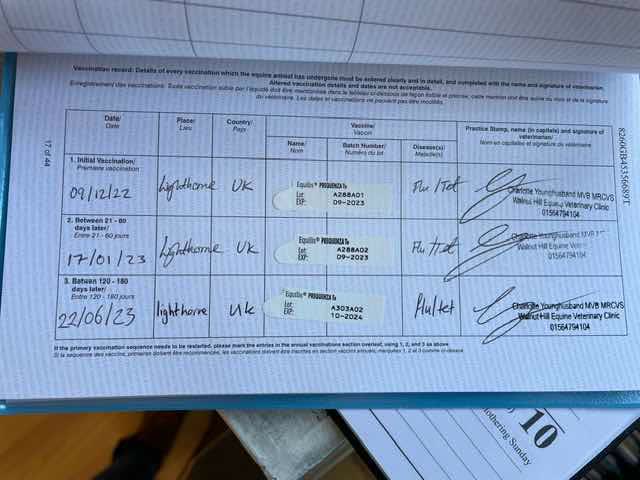 Vaccination record: Details of every vaccination which the equine animal has undergone must be entered clearly and in detail, and completed with the name and signature of veterinarian.
Altered vaccination details and dates are not acceptable.
Enregistrement des vaccinations: Toute vaccination subie par l'équidé doit être mentionnée dans le tableau ci-dessous de façon lisible et précise, cette mention doit être suivie du nom et de la signature
du vétérinaire. Les dates et vaccinations ne peuvent pas être modifiés.
17 of 44
8260GB45356689T
Date/ Date
Place/ Lieu
Country/ Pays
Vaccine/ Vaccin
Name/ Nom
Batch Number/ Numéro du lot
Disease(s) Maladie(s)
Practice Stamp, name (in capitals) and signature of veterinarian/
Nom en capitales et signature du vétérinaire
1. Initial Vaccination/
Première vaccination
09/12/22 Lighthorne UK
Equilis® PREQUENZA Te
Lot: A288A01
EXP: 09-2023
Flu/Tet
Charlotte Younghusband MVB MRCVS
Walnut Hill Equine Veterinary Clinic
01564794104
2. Between 21 - 60
days later/
Entre 21 - 60 jours
17/01/23 Lighthorne UK
Equilis® PREQUENZA Te
Lot: A288A02
EXP: 09-2023
Flu/Tet
Charlotte Younghusband MVB
Walnut Hill Equine
01564794104
3. Between 120 - 180
days later/
Entre 120 - 180 jours
22/06/23 lighthorne UK
Equilis® PREQUENZA Te
Lot: A303A02
EXP: 10-2024
flu/tet
Charlotte Younghusband MVB MRCVS
Walnut Hill Equine Veterinary Clinic
01564794104
If the primary vaccination sequence needs to be restarted, please mark the entries in the annual vaccinations section overleaf, using 1, 2, and 3 as above
10
othering Sunday